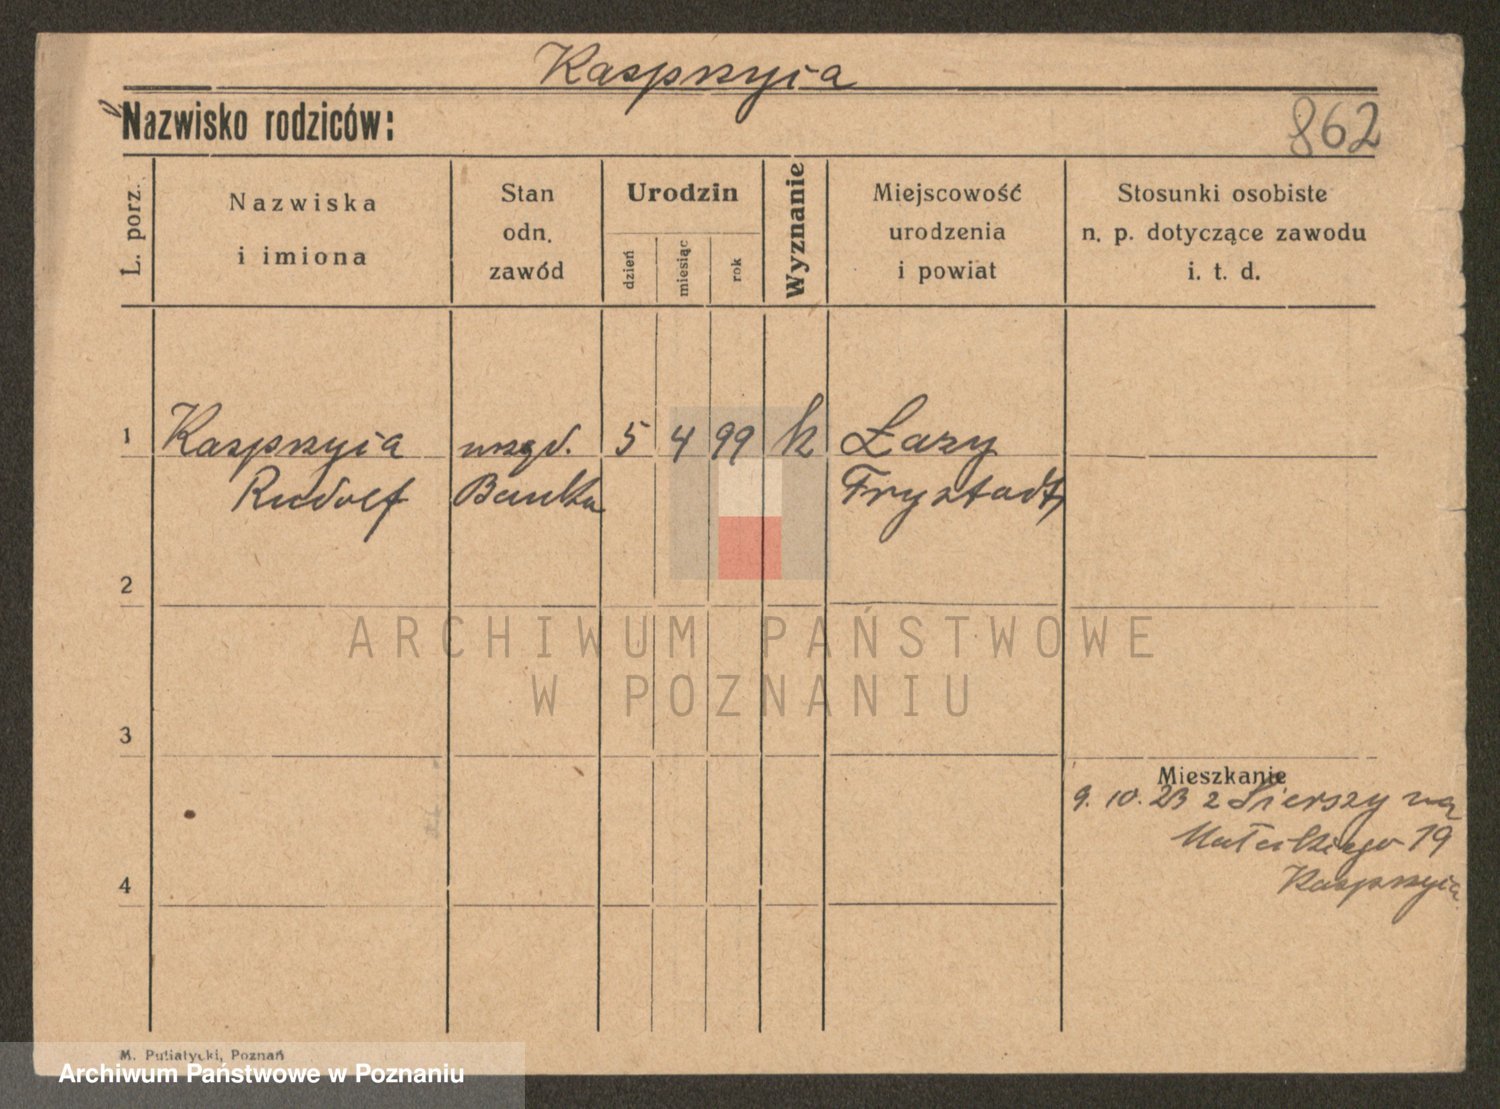 Kasprzyia
Nazwisko rodziców:
862
L. porz.
Nazwiska
i imiona
Stan
odn.
zawód
Urodzin
dzień
miesiąc
rok
Wyznanie
Miejscowość
urodzenia
i powiat
Stosunki osobiste
n. p. dotyczące zawodu
i. t. d.
1 Kasprzyia urzęd. 5 4 99 k Łazy
Rudolf Banku Frysztadt
2
ARCHIWUM PAŃSTWOWE
W POZNANIU
3
Mieszkanie
9. 10. 23 z Sierszy na
Małeckiego 19
Kasprzyia
4
M. Putiatycki, Poznań
Archiwum Państwowe w Poznaniu